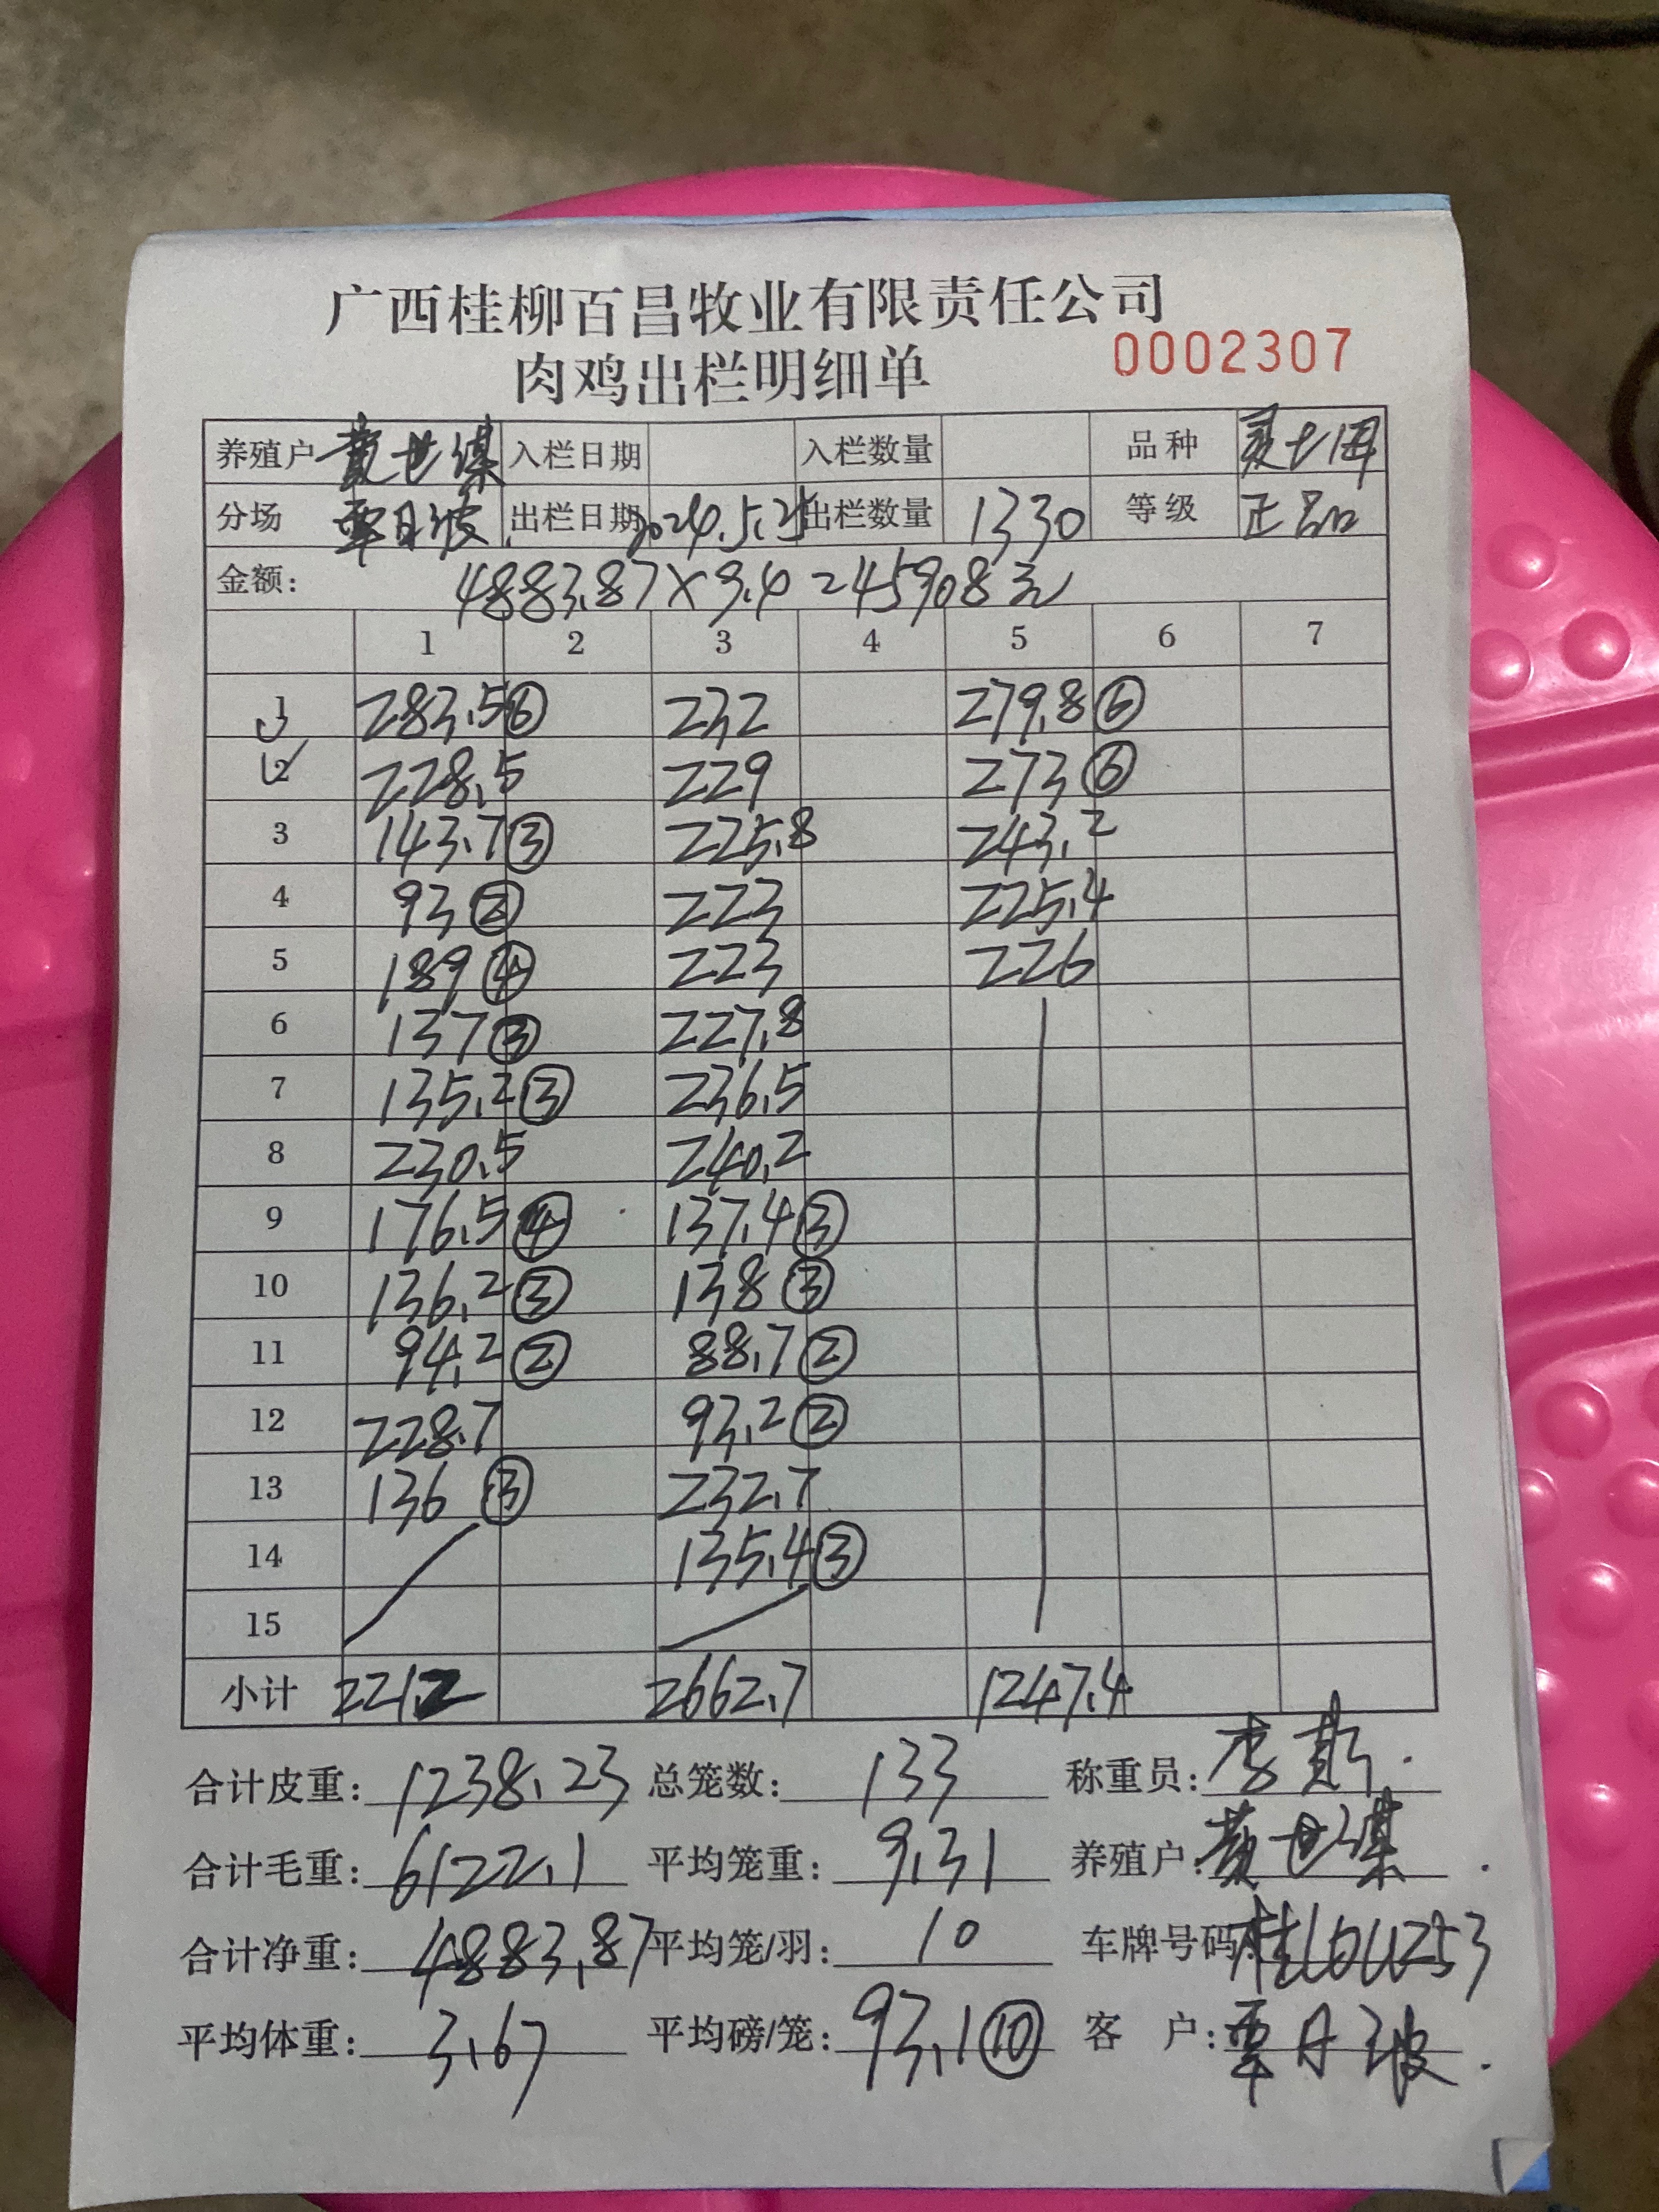 广西桂柳百昌牧业有限责任公司
肉鸡出栏明细单 0002307
养殖户 黄世谋 入栏日期 入栏数量 品种
分场 覃月波 出栏日期 2024.5.25 出栏数量 1330 等级 正品
金额: 4883.87×9.4=45908元
1 2 3 4 5 6 7
1 283.5⑥ 232 279.8⑥
2 228.5 229 273⑥
3 143.7③ 225.8 243.2
4 93② 223 225.4
5 189④ 223 226
6 137③ 227.8
7 135.2③ 236.5
8 230.5 240.2
9 176.5④ 137.4③
10 136.2③ 138③
11 94.2② 88.7②
12 228.7 93.2②
13 136③ 232.7
14 135.4③
15
小计 2212 2662.7 1247.4
合计皮重: 1238.23 总笼数: 133 称重员:
合计毛重: 6122.1 平均笼重: 9.31 养殖户: 黄世谋
合计净重: 4883.87 平均笼/羽: 10 车牌号码:
平均体重: 3.67 平均磅/笼: 93.1⑩ 客 户: 覃月波